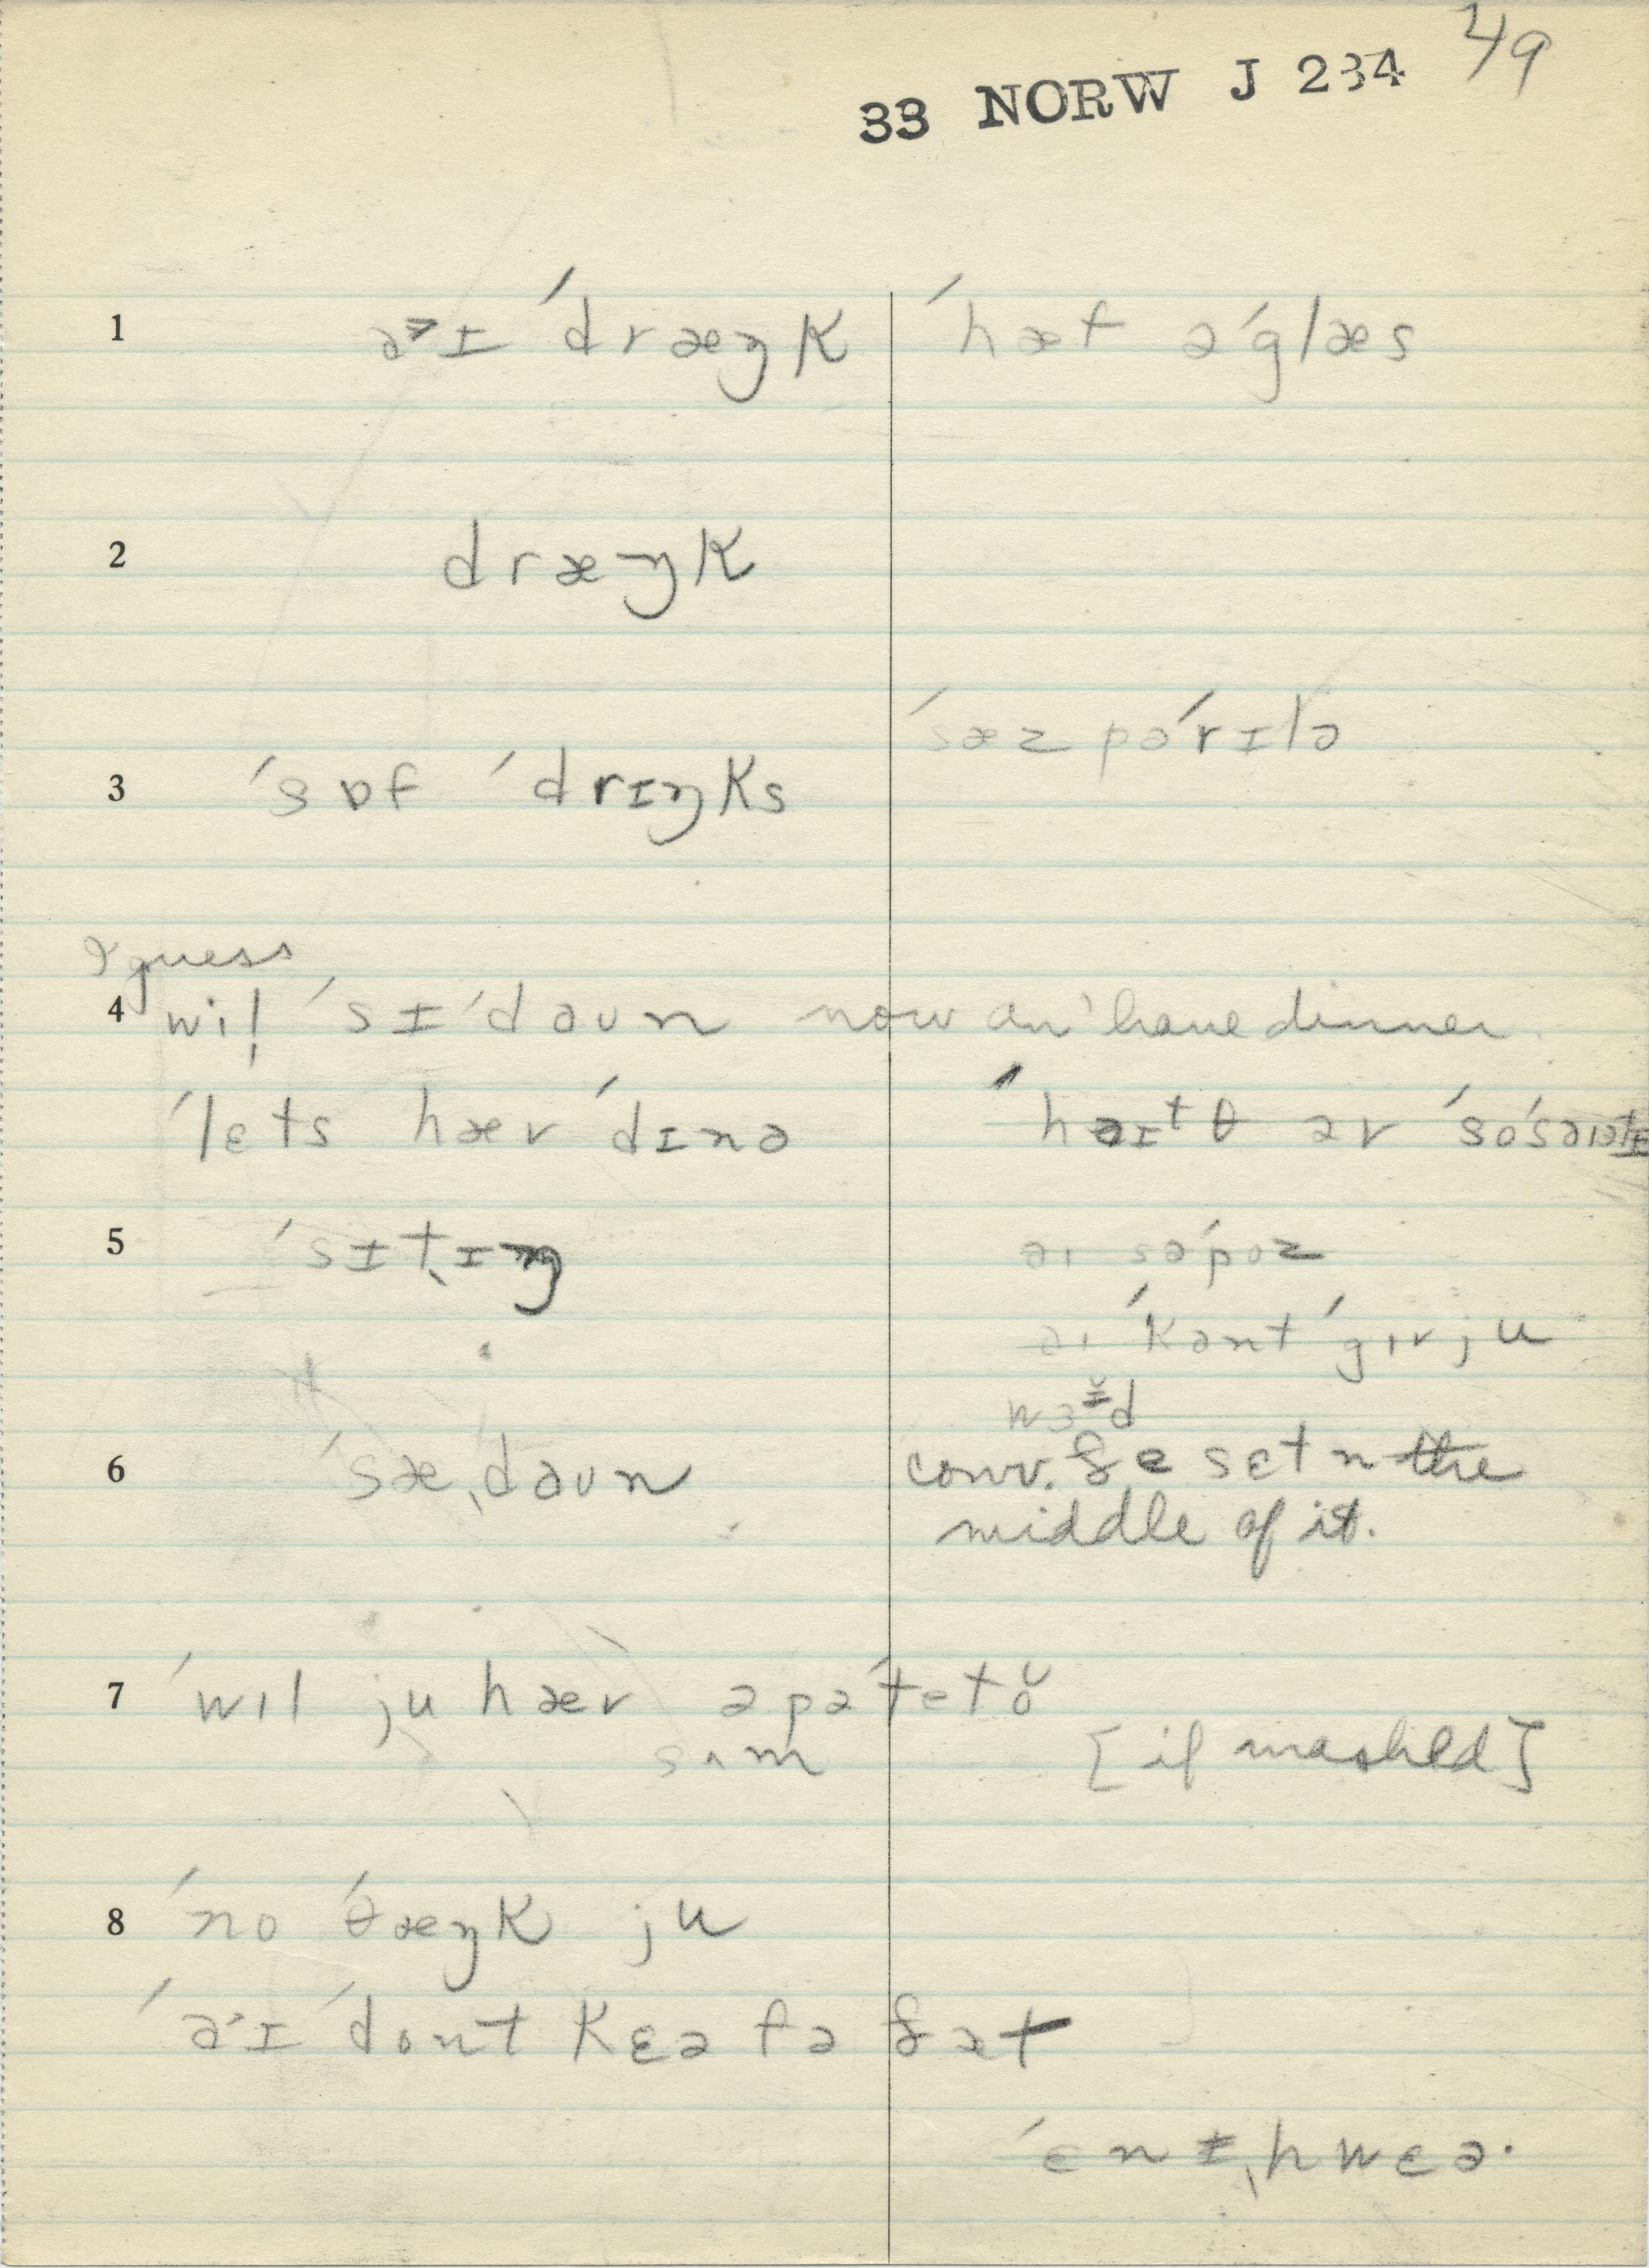 49
33 NORW J 234
1 a˃ɪ ˈdræŋk ˈhæf əˈglæs
2 dræŋk
ˈsæzpəˈrɪlə
3 ˈsɒf ˈdrɪŋks
I guess
4 wil̩ ˈsɪˈdaun now an' have dinner.
ˈlɛts hæv ˈdɪnə ˈhaɪtθ əv ˈsoˈsaɪətɪ
5 ˈsɪt̬ɪŋ aɪ səˈpoz
aɪ ˈkant ˈgɪv ju
wɜɪ̆d
6 ˈsæˌdaun conv. ðe sɛt n the
middle of it.
7 ˈwɪl ju hæv ə pəˈtetŏ
sʌm [if mashed]
8 ˈno ˈθæŋk ju
ˈaˑɪ ˈdont kɛə fə ðæt
ˈɛnɪˌhwɛə·